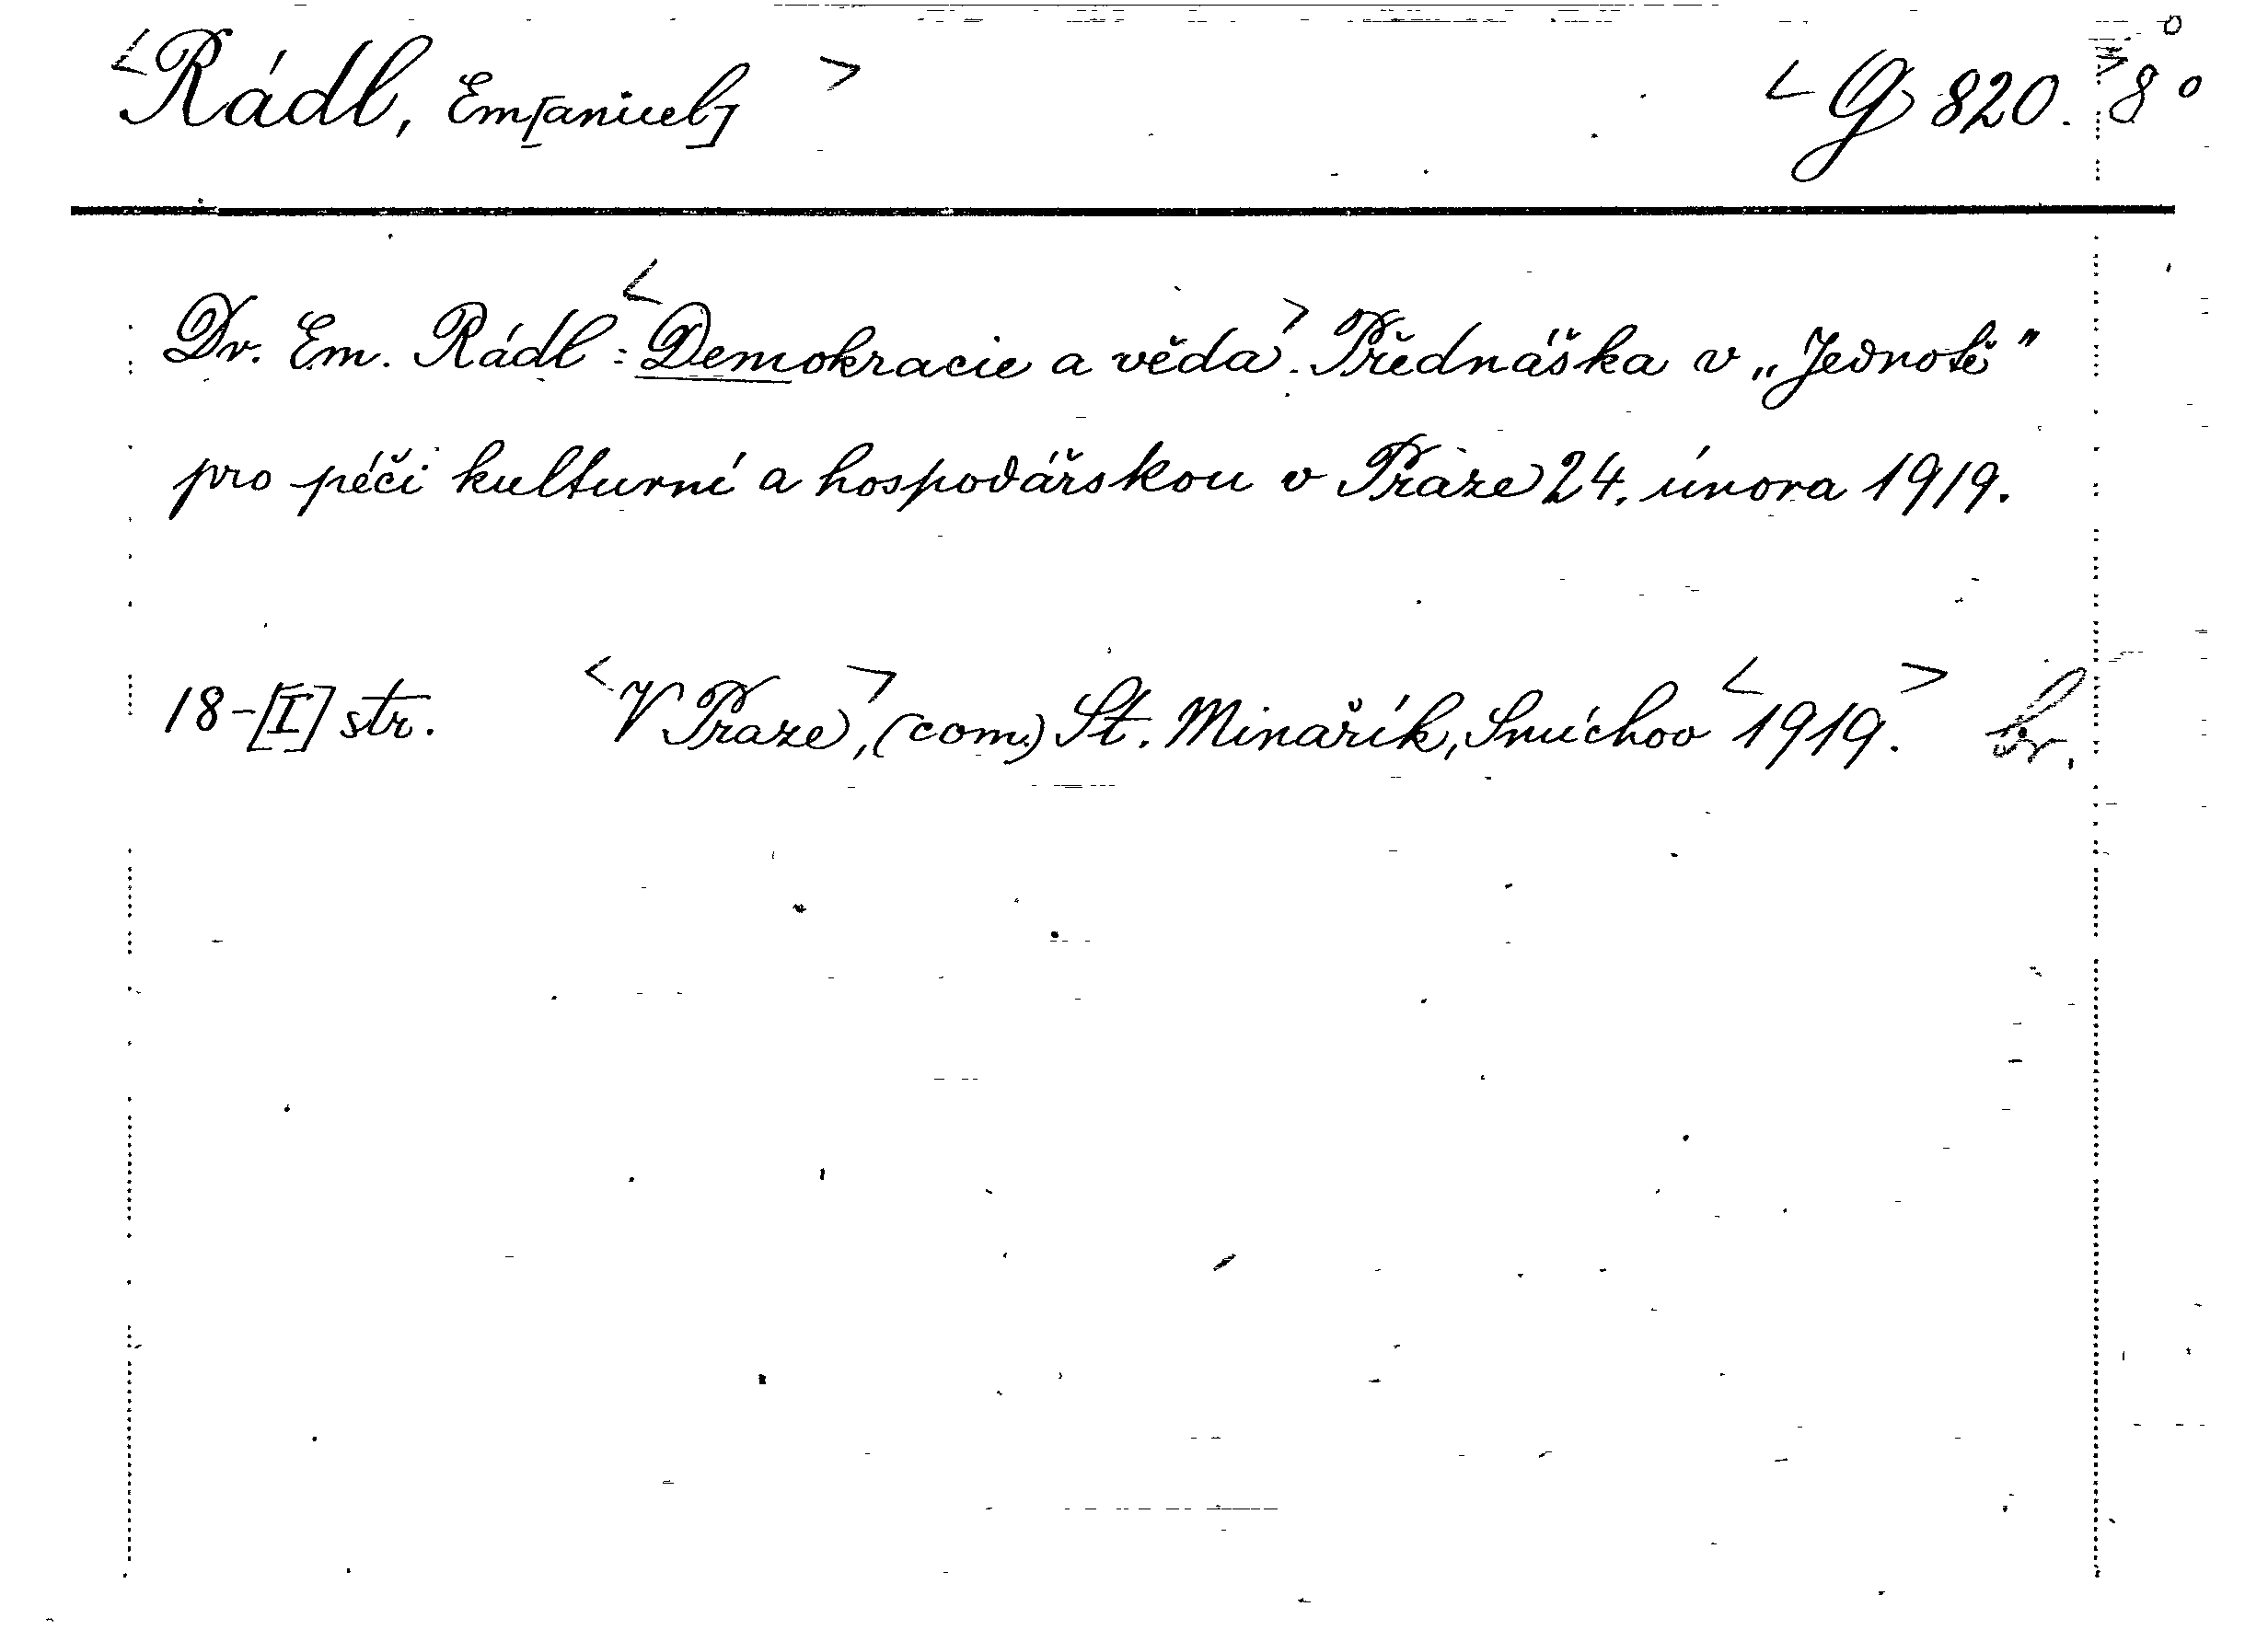 <Rádl, Em[anuel]> <G 820.> 8°
Dr. Em. Rádl: <Demokracie a věda>. Přednáška v „Jednotě"
pro péči kulturní a hospodářskou v Praze 24. února 1919.
18-[I] str. <V Praze>, (com.) St. Minařík, Smíchov <1919>. br.